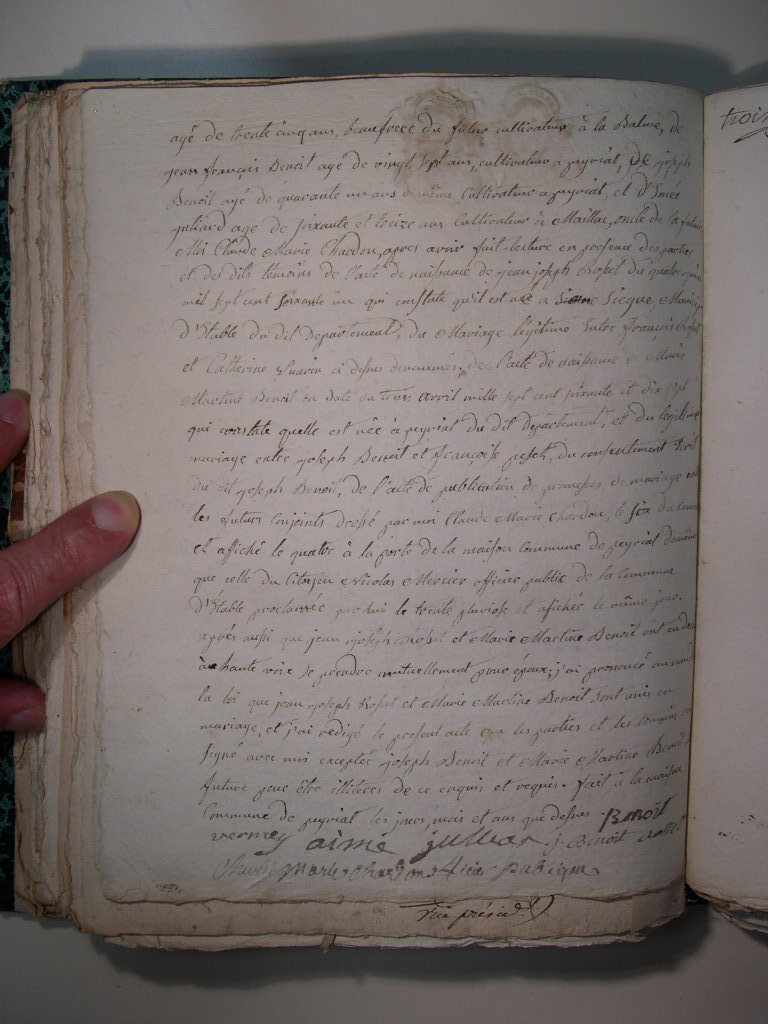 agé de trente cinq ans, beaufrere du futur cultivateur à la Balme, de
jean françois Benoit agé de vingt sept ans, cultivateur à peyriat, de joseph
Benoit agé de quarante un ans de même cultivateur a peyriat, et d'Aimée
julliard age de soixante et treize ans Cultivateur à Maillac, oncle de la future
Moi Claude Marie Chardon, apres avoir fait lecture en presence des parties
et des dits témoins de l'acte de naissance de jean joseph Rosset du quatre
mil sept cent soixante un qui constate qu'il est né a Siegne
d'Etable du dit Departement, du Mariage légitime entre françois Rosset
et Catherine à desus denommés, de l'acte de naissance de Marie
Martine Benoit en date du trois avril mille sept cent soixante et dix sept
qui constate quelle est née à peyriat du dit Departement, et du légitime
mariage entre joseph Benoit et françoise du consentement
du dit joseph Benoit, de l'acte de publication de promesses de mariage entre
les futurs conjoints dressé par moi Claude Marie Chardon, le
et affiché le quatre à la porte de la maison Commune de peyriat de même
que celle du Citoyen Nicolas Mercier officier public de la Commune
d'Etable proclamée par lui le trente pluviose et affichée le même jour.
après aussi que jean joseph Rosset et Marie Martine Benoit ont
à haute voix se prendre mutuellement pour époux; j'ai prononcé au nom de
la loi que jean joseph Rosset et Marie Martine Benoit sont unis en
mariage, et j'ai redigé le present acte que les parties et les temoins
signé avec moi excepté joseph Benoit et Marie Martine Benoit
future pour être illitéres de ce enquis et requis. fait à la maison
Commune de peyriat les jour, mois et ans que dessus Benoit
aimé julliar j. Benoit
Marie Chardon officier Publique
troi